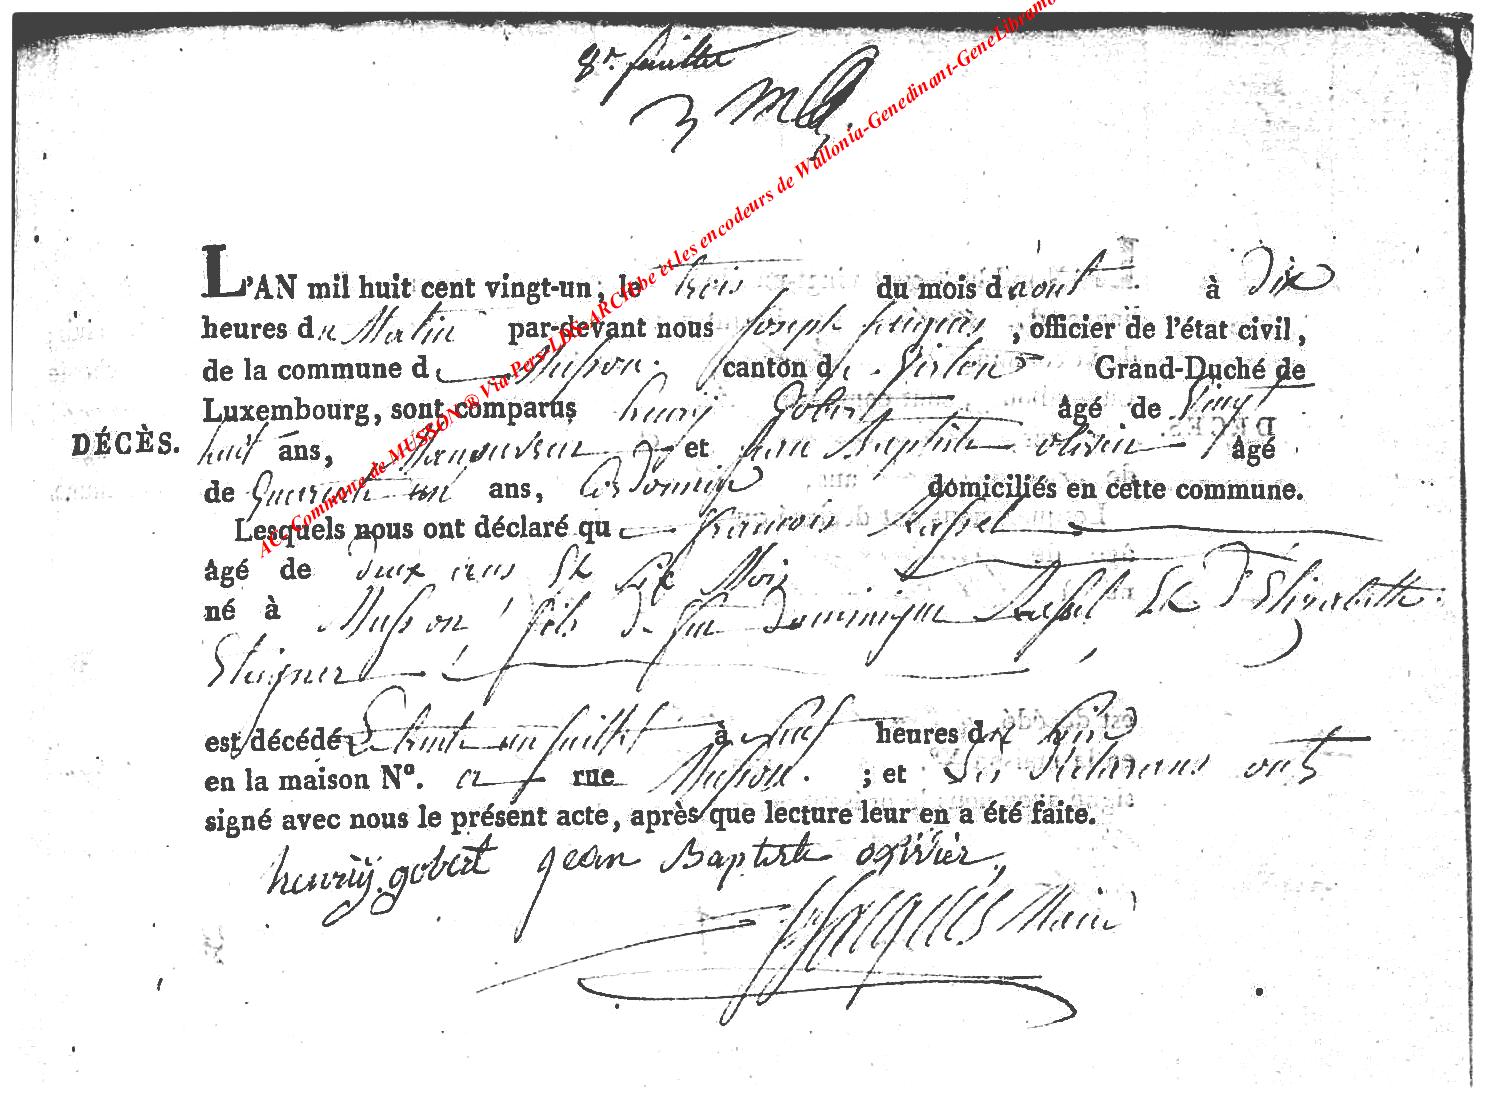 8r. feuillet
AC. Commune de MUSSON ® Via Pers-LDS-ARCH.be et les encodeurs de Wallonia-Genedinant-GeneLibramo
L'AN mil huit cent vingt-un, le trois du mois d'aout à Dix
heures du Matin par-devant nous Joseph Jacques, officier de l'état civil,
de la commune de Musson. canton de Virton Grand-Duché de
Luxembourg, sont comparus henrij Gobert âgé de Vingt
DÉCÈS.
huit ans, Manouvrier et Jean Baptiste olivier âgé
de Quarante un ans, Cordonnier domiciliés en cette commune.
Lesquels nous ont déclaré que francois Raspel
âgé de deux ans Et Six Mois
né à Musson fils de feu Dominique Raspel Et D'Elizabette
est décédé Le trente un Juillet à huit heures du Soir
en la maison No. a rue Musson. ; et Les Declarans ont
signé avec nous le présent acte, après que lecture leur en a été faite.
henrÿ gobert jean Baptiste olivier
JJacques Maire